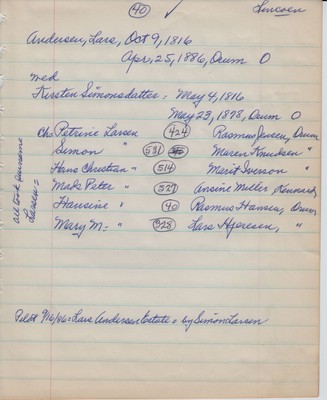 40 ✓ Lincoln
Andersen, Lars, Oct 9, 1816
Apr. 25, 1886, Orum O
med
Kirsten Simonsdatter: May 4, 1816
May 23, 1898, Orum O
ch: Petrine Larsen 424 Rasmus Jensen, Orum
Simon " 531 Maren Knudsen "
Hans Christian " 514 Marit Iverson "
Mads Peter " 527 Ansine Miller, Kennard
Hansine " 40 Rasmus Hansen, Orum
Mary M. = " 328 Lars Hjeresen, "
all took surname
Larsen =
Pilot 9/16/86 = Lars Andersen Estate = by Simon Larsen